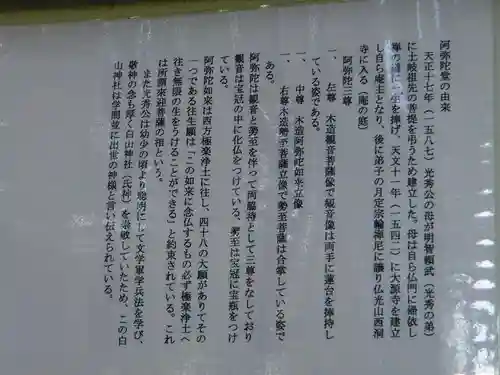 阿弥陀堂の由来
天正十七年(一五八七)光秀公の母が明智頼武(光秀の弟)
に土岐祖先の菩提を弔うため建立した。母は自ら仏門に帰依し
の為に一生を捧げ、天文十一年(一五四二)に大源寺を建立
し自ら庵主となり、後に弟子の月定宗輪禅尼に譲り仏光山西洞
寺に入る(庵の庭)
阿弥陀三尊
一、左尊 木造観音菩薩像で観音像は両手に蓮台を捧持し
ている姿である。
一、中尊 木造阿弥陀如来立像
一、右尊木造勢至菩薩立像で勢至菩薩は合掌している姿で
ある。
阿弥陀は観音と勢至を伴って両脇待として三尊をなしており
観音は宝冠の中に化仏をつけている、勢至は宝冠に宝瓶をつけ
ている。
阿弥陀如来は西方極楽浄土に住し、四十八の大願がありてその
一つである往生願は「この如来に念仏するもの必ず極楽浄土へ
往き無限の生をうけることができる」と約束されている。これ
は所謂来迎菩薩の相という。
また光秀公は幼少の頃より聡明にして文学軍学兵法を学び、
敬神の念も厚く白山神社(氏神)を崇敬していたため、この白
山神社は学問並に出世の神様と言い伝えられている。